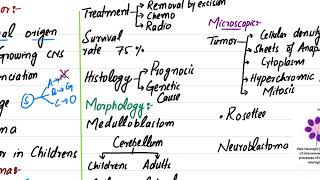 or:-
al origen
Growing CNS
enciation
S A→ X
B→G
C→O
ma
or in Childrens
mas:
Treatment → Removal by excision
→ Chemo
→ Radio
Survival
rate 75%
Histology → Prognocis
→ Genetic
Cause
Morphology:
Medulloblastom
Cerebellum
Childrens Adults
Microscopic:
Tumor → Cellular density
→ Sheets of Anap
→ Cytoplasm
→ Hyperchromic
→ Mitosis
• Rosettee
Neuroblastoma